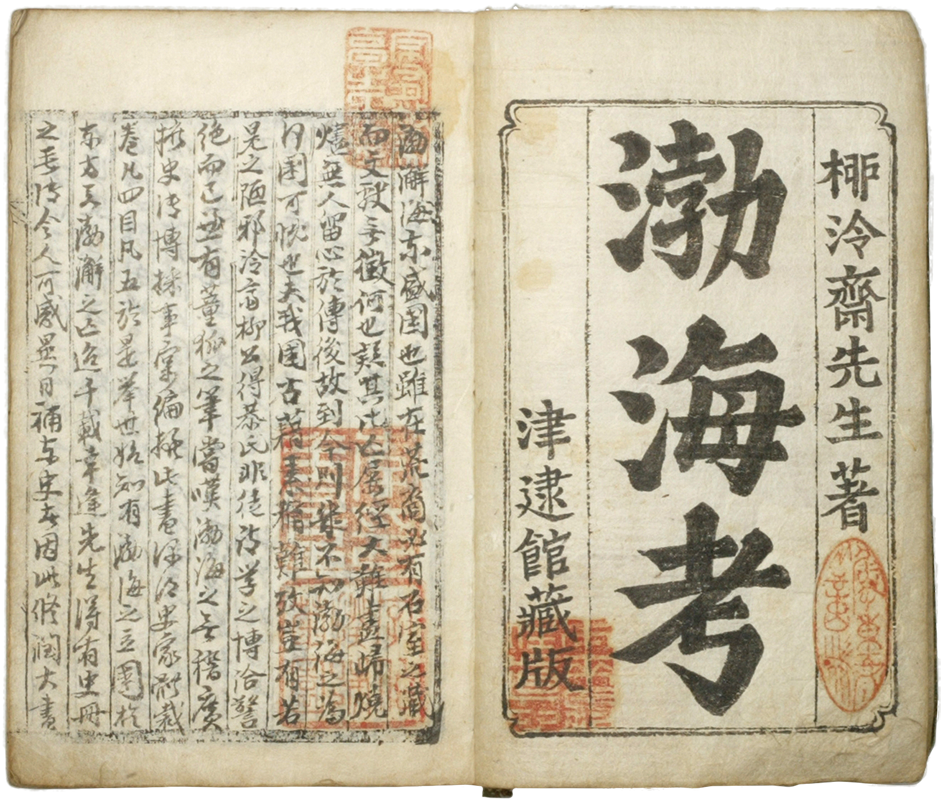 桺泠齋先生著
渤海考
津逮館藏版
渤澥海東盛國也雖在荒裔必有石室之藏
而文獻無徵何也其亡屢經大難盡歸燒
燼無人留心於傳後故到今則不知渤海之為
何國可忱也夫我國古蹟素稱難攷豈有若
是之陋邪泠齋柳公得恭氏非徒詩學之博洽警
絕而已並有董狐之筆嘗嘆渤海之無稽廣
据史傳博採事實編撰此書深得史家裁
卷凡四目凡五於是舉世始知有渤海之立國於
東方矣渤澥之亡迨千載幸逢先生得有史冊
之垂今人可感異日補東史者因此修潤大書